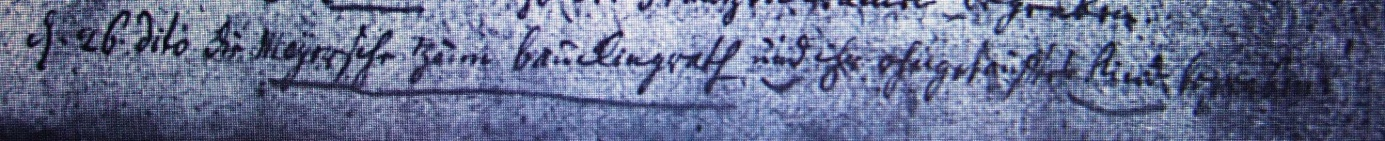 begraben.
d. 26. dito die Meyersche zum baucklingroth und ihr ohngetaufftes Kind begraben